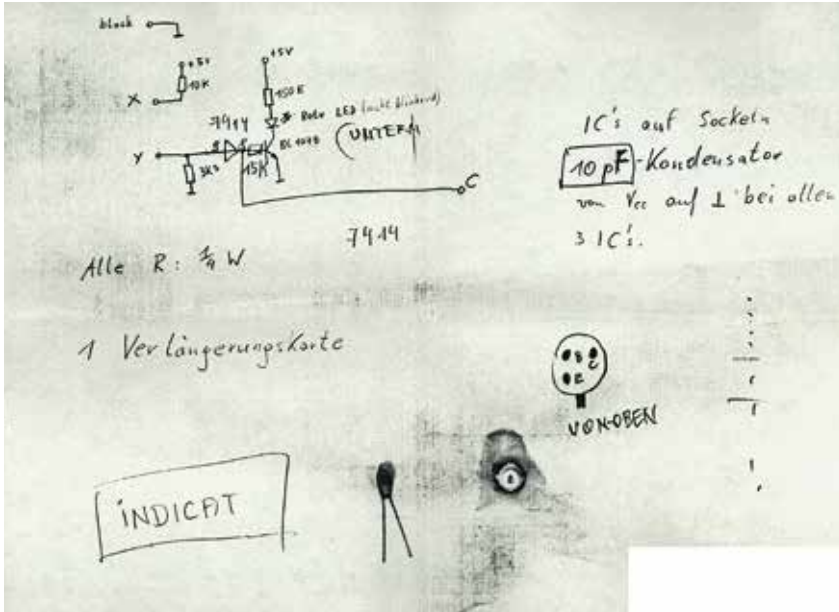 block
+5V
10K
X
+5V
150Ω
Rote LED (nicht blinkend)
7414
BC107B
(UNTER)
Y
3K3
15K
C
7414
IC's auf Sockeln
10 pF-Kondensator
von Vcc auf ⊥ bei allen
3 IC's.
Alle R: ¼ W
1 Verlängerungskarte
B
C
E
VON-OBEN
INDICAT